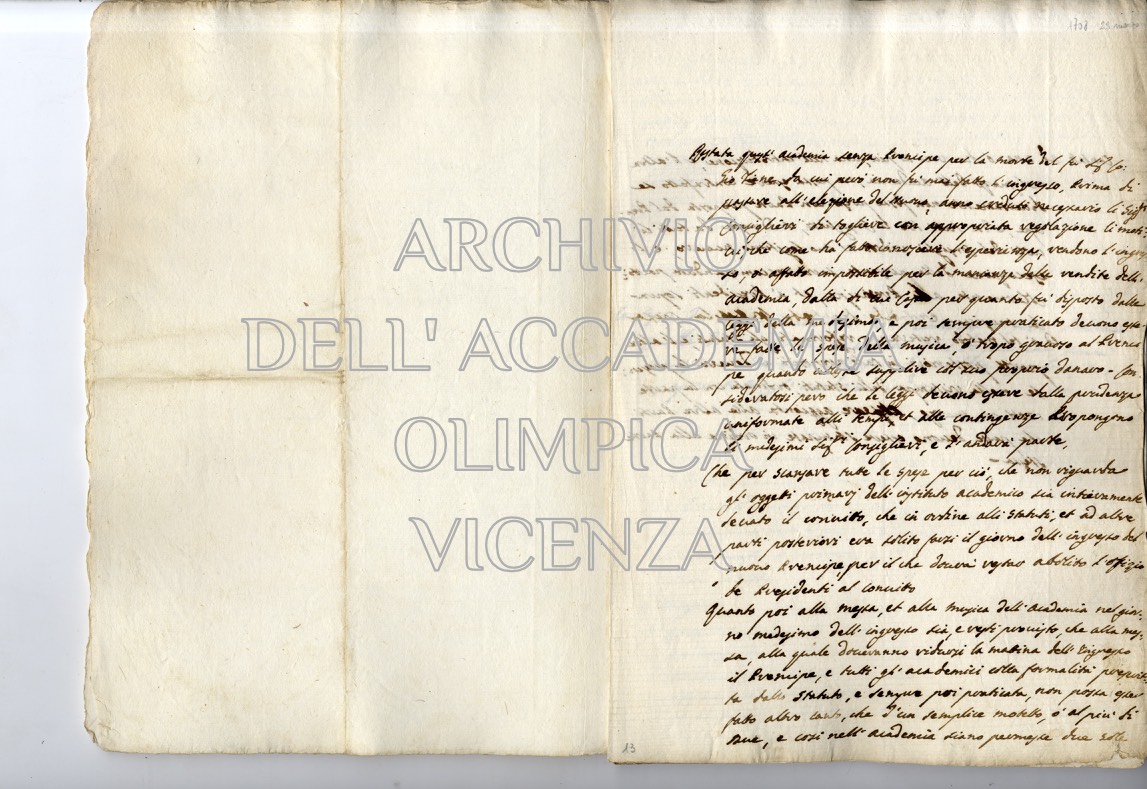 1708 23
Restata quest' Academia senza Prencipe per la morte del fu Sig.r Co:
da cui però non fu mai fatto l'ingresso, Prima di
passare all'elezione del Nuouo, anno creduto necessario li Sig.ri
Consiglieri di togliere con appropriata regolazione li moti-
ui, che come ha fato conoscere l'esperienza, rendono l'ingres-
so, ò afato impossibile per la mancanza delle rendite dell'
Academia, dalla di cui Cassa per quanto fu disposto dalle
leggi della medesima e poi sempre praticato deuono esse-
re fatte le spese della musica, ò tropo grauoso al Prenci-
pe quanto uolesse supplire col suo proprio danaro - Con-
sideratosi però che le leggi deuono essere dalla prudenza
uniformate alli tempi, et alle contingenze Propongono
li medesimi Sig.ri Consiglieri, e d'andarà parte,
Che per scansare tutte le spese per ciò, che non riguarda
gl' oggetti primarj dell' instituto academico sia intieramente
leuato il conuito, che in ordine alli statuti, et ad altre
parti posteriori era solito farsi il giorno dell' ingresso del
nuouo Prencipe, per il che dourà restar abolito l'offizio
de Presidenti al conuito
Quanto poi alla messa, et alla musica dell' academia nel gior-
no medesimo dell' ingresso sia, e resti preciso, che alla mes-
sa, alla quale doueranno ridursi la matina dell' Ingresso
il Prencipe, e tutti gl' academici colla formalità prescrit-
ta dallo Statuto, e sempre poi praticata, non possa esser
fatto altro canto, che d'un semplice motetto, ò al più di
due, e così nell' academia siano permesse due sole
13
ARCHIVIO
DELL' ACCADEMIA
OLIMPICA
VICENZA